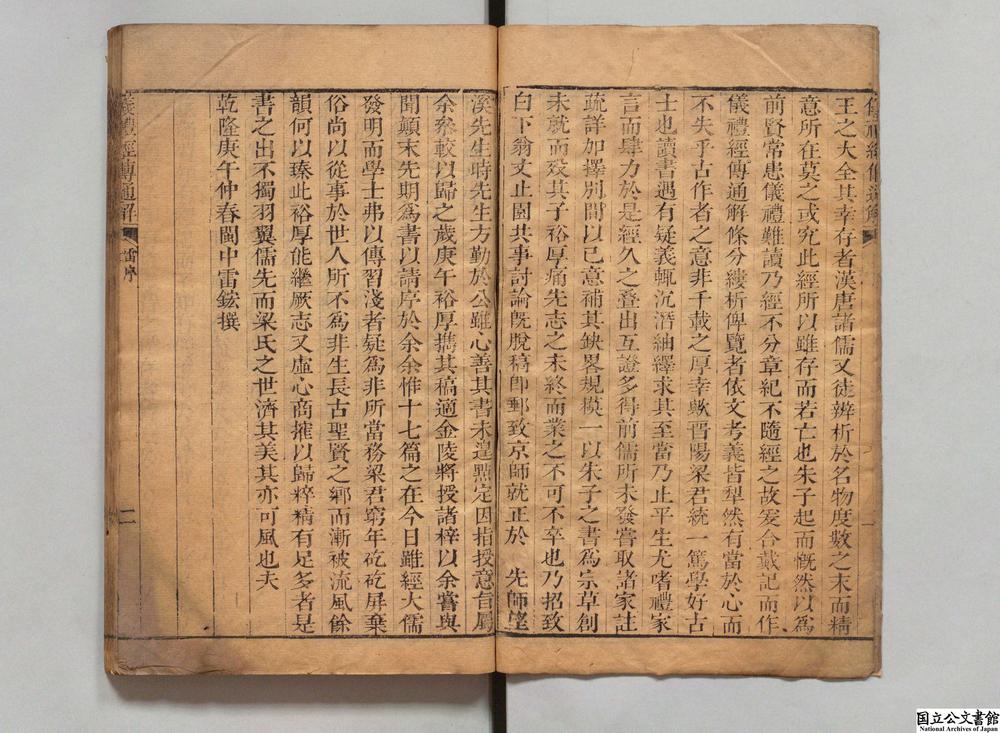 王之大全其幸存者漢唐諸儒又徒辨析於名物度數之末而精
意所在莫之或究此經所以雖存而若亡也朱子起而慨然以爲
前賢常患儀禮難讀乃經不分章紀不隨經之故爰合戴記而作
儀禮經傳通解條分縷析俾覽者依文考義皆犁然有當於心而
不失乎古作者之意非千載之厚幸歟晋陽梁君統一篤學好古
士也讀書遇有疑義輒沉潛紬繹求其至當乃止平生尤嗜禮家
言而肆力於是經久之叠出互證多得前儒所未發嘗取諸家註
疏詳加擇別間以己意補其缺畧規模一以朱子之書爲宗草創
未就而歿其子裕厚痛先志之未終而業之不可不卒也乃招致
白下翁丈止園共事討論旣脫稿卽郵致京師就正於 先師望
溪先生時先生方勤於公雖心善其書未遑㸃定因指授意旨屬
余叅較以歸之歲庚午裕厚擕其稿適金陵將授諸梓以余嘗與
聞顛末先期爲書以請序於余余惟十七篇之在今日雖經大儒
發明而學士弗以傳習淺者疑爲非所當務梁君窮年矻矻屏棄
俗尚以從事於世人所不爲非生長古聖賢之鄉而漸被流風餘
韻何以臻此裕厚能繼厥志又虛心商搉以歸粹精有足多者是
書之出不獨羽翼儒先而梁氏之世濟其美其亦可風也夫
乾隆庚午仲春閩中雷鋐撰
儀禮經傳通解
雷序
二
国立公文書館
National Archives of Japan